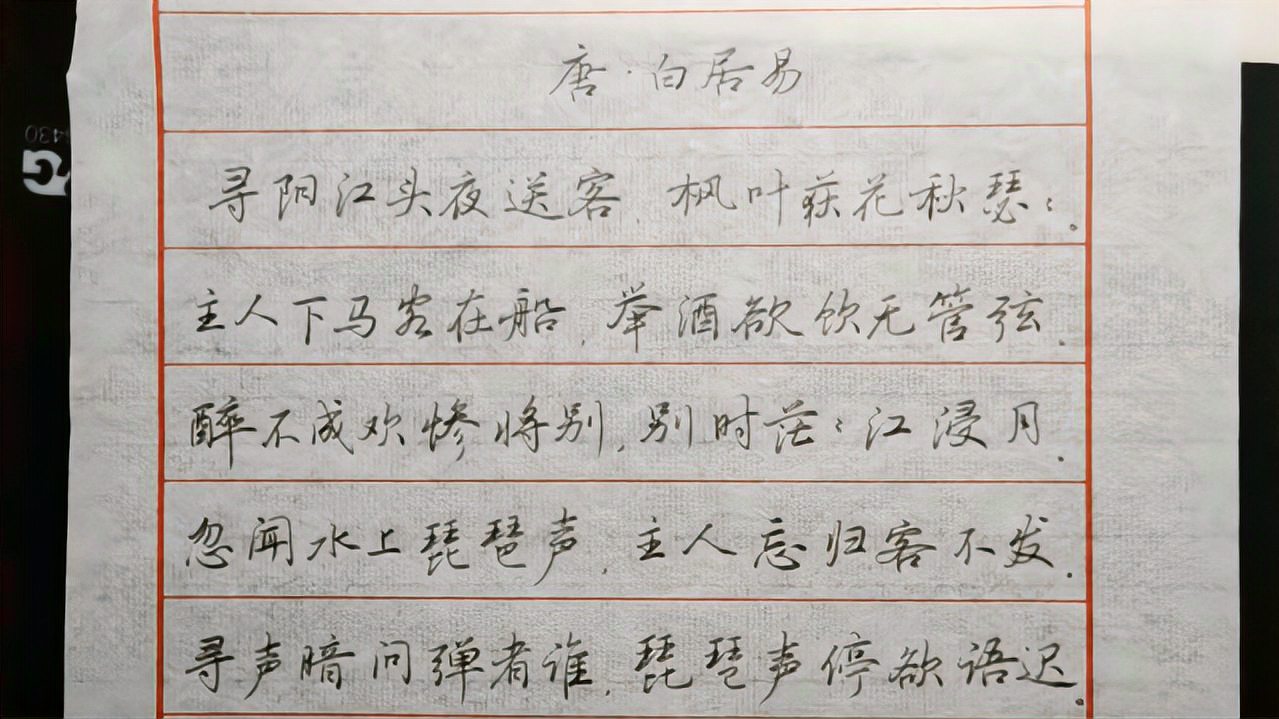 唐·白居易
寻阳江头夜送客,枫叶荻花秋瑟:.
主人下马客在船,举酒欲饮无管弦.
醉不成欢惨将别,别时茫:江浸月.
忽闻水上琵琶声,主人忘归客不发.
寻声暗问弹者谁,琵琶声停欲语迟.